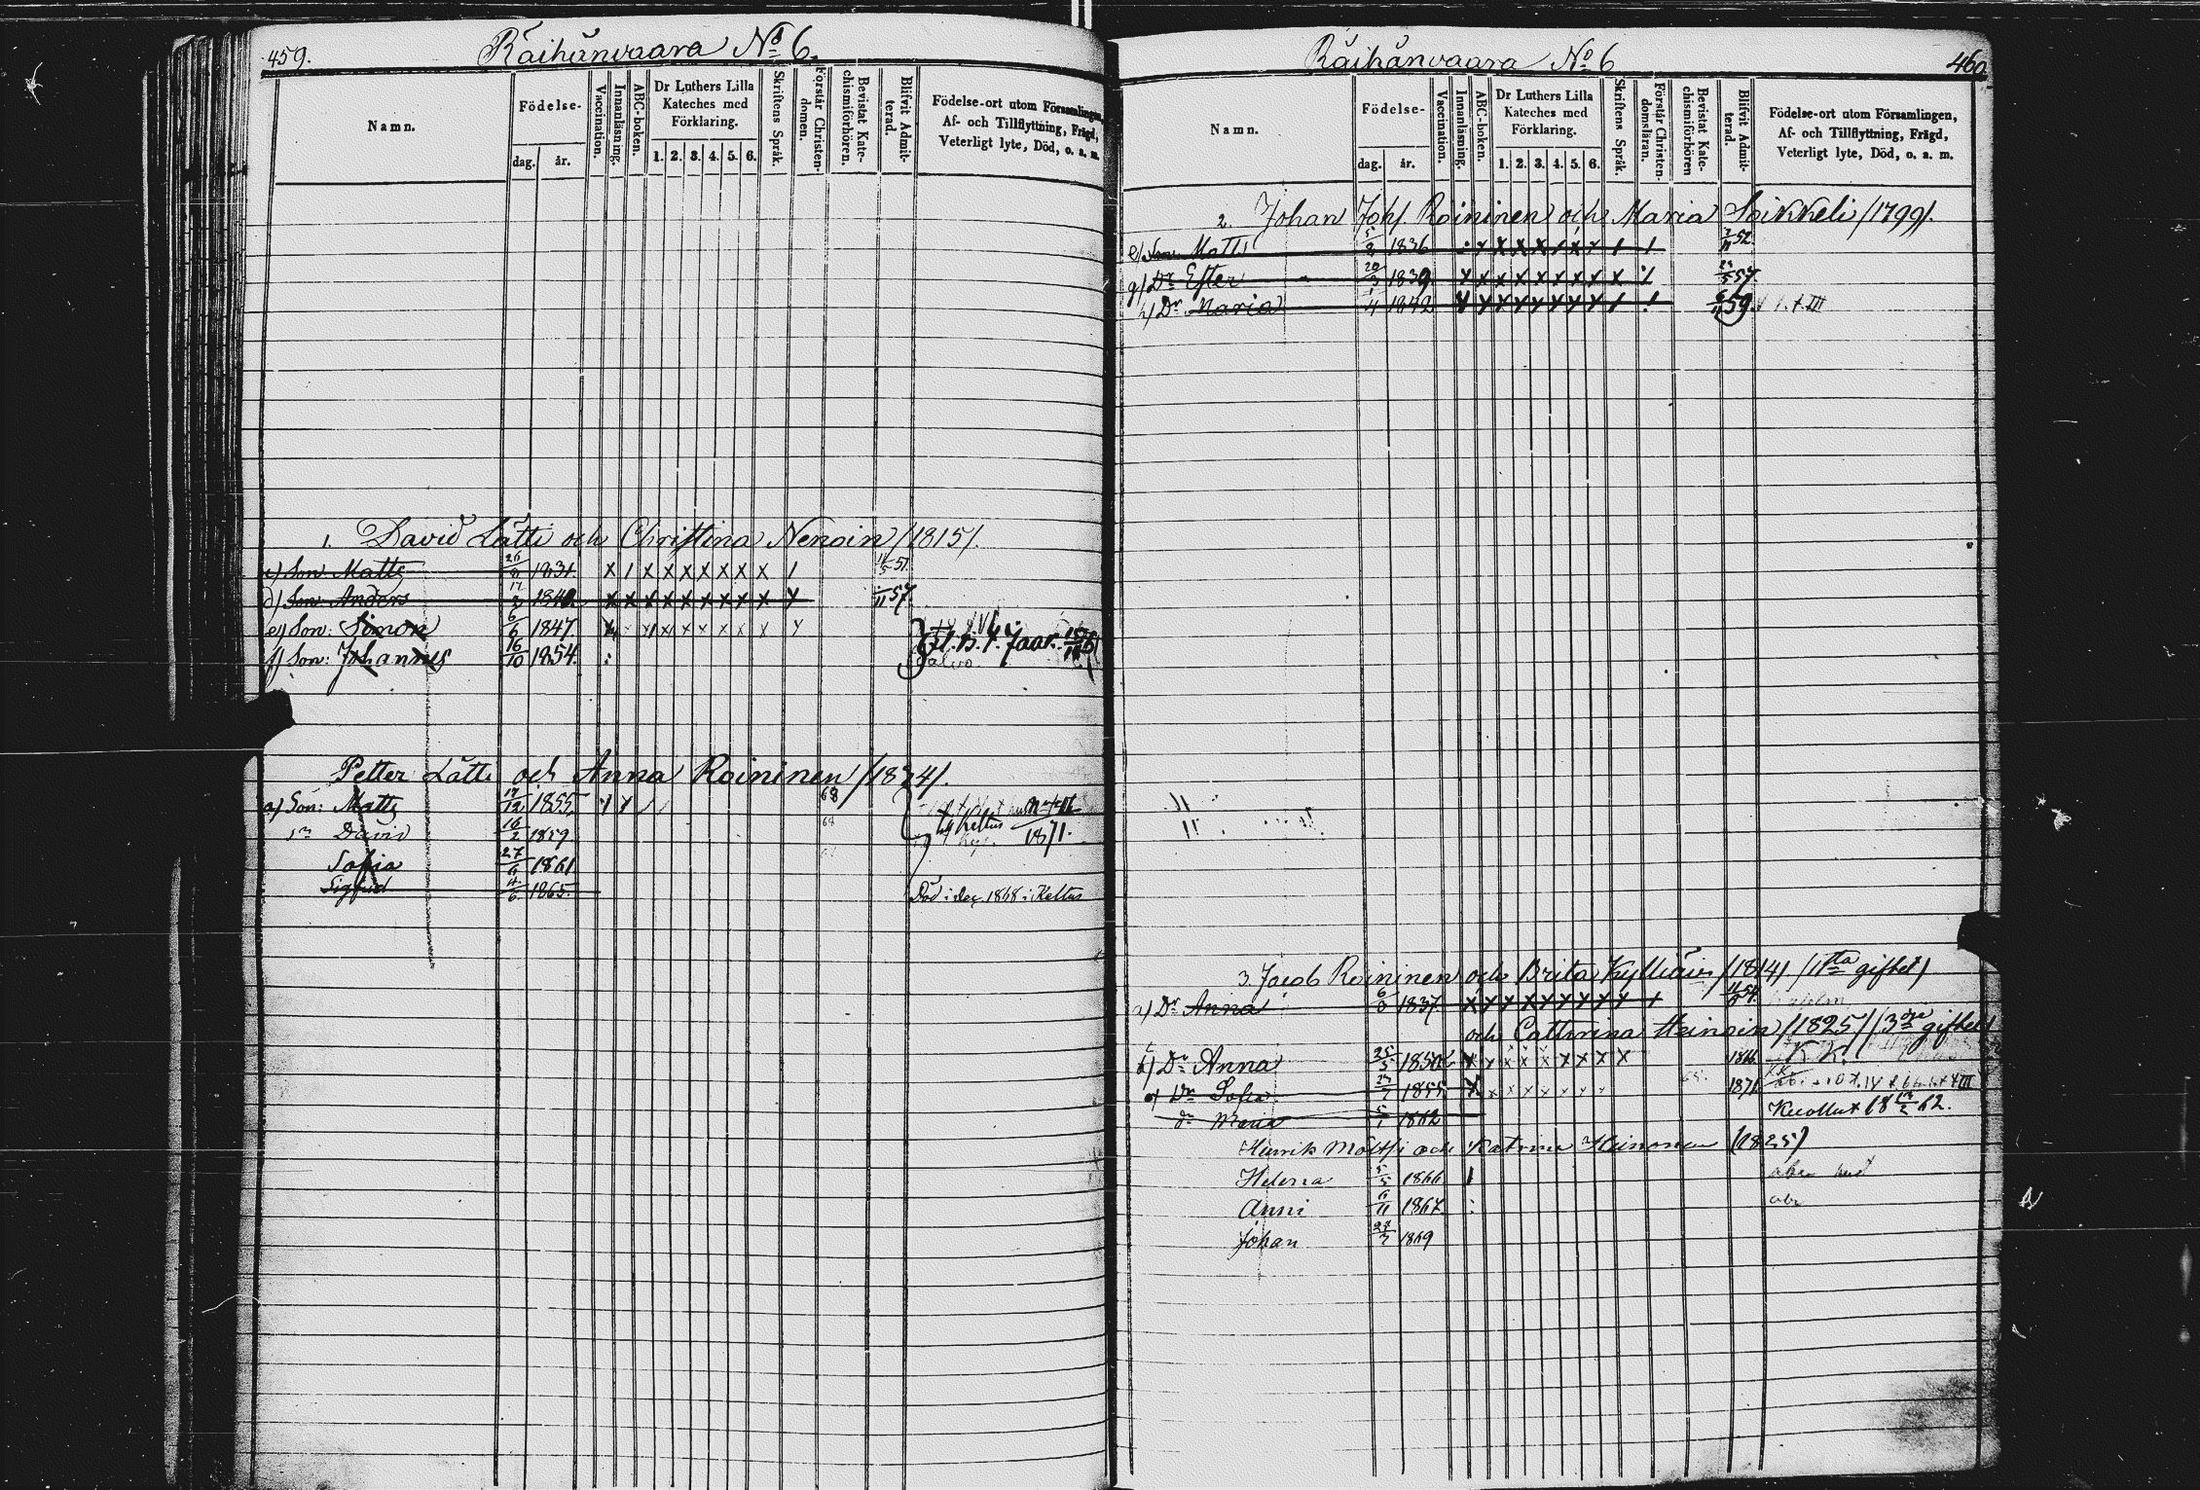 459.
Räihänvaara No 6.
Namn.
Födelse-
dag.
år.
Vaccination.
Innanläsning.
ABC-boken.
Dr Luthers Lilla
Kateches med
Förklaring.
1. 2. 3. 4. 5. 6.
Skriftens Språk.
Förstår Christen-
domen.
Bevistat Kate-
chismiförhören.
Blifvit Admit-
terad.
Födelse-ort utom Församlingen,
Af- och Tillflyttning, Frägd,
Veterligt lyte, Död, o. s. m.
1. David Lätti och Christina Nenoin /1815/.
c) Son Matts 26/8 1831. X 1 X X X X X X X X 1 51.
d) Son Anders 1840 X X X X X X X X X 57
e) Son: Simon 6/6 1847.
f) Son: Johannes 16/10 1854.
Petter Lätti och Anna Roininen /1824/.
a) Son: Matts 17/12 1855, 68
David 16/2 1859
Keltus 1871.
Sofia 27/6 1861
Sigfrid 4/6 1865. Död i Dec. 1868 i Keltus
Räihänvaara No 6
460
Namn.
Födelse-
dag.
år.
Vaccination.
Innanläsning.
ABC-boken.
Dr Luthers Lilla
Kateches med
Förklaring.
1. 2. 3. 4. 5. 6.
Skriftens Språk.
Förstår Christen-
domsläran.
Bevistat Kate-
chismiförhören
Blifvit Admit-
terad.
Födelse-ort utom Församlingen,
Af- och Tillflyttning, Frägd,
Veterligt lyte, Död, o. s. m.
2. Johan Johs. Roininen och Maria Soikkeli /1799/.
e) Son Matts 5/8 1836 52.
g) Dr Ester 20/3 1839 57.
h) Dr Maria 1/4 1842 59.
3. Jacob Roininen och Brita Kylliäin /1814/ /1sta giftet/
a) Dr Anna 6 1837. 54.
och Cathrina Heinoin /1825/ /3dje giftet/
b) Dr Anna 25/5 1850 1866 K K
Dr Sofia 1855 1871
dr Maria 5/1 1862 Kuollut 62.
Henrik Mältsi och Katrina Heinonen (1825)
Helena 5/5 1866 1
Anni 6/11 1867 :
Johan 1869